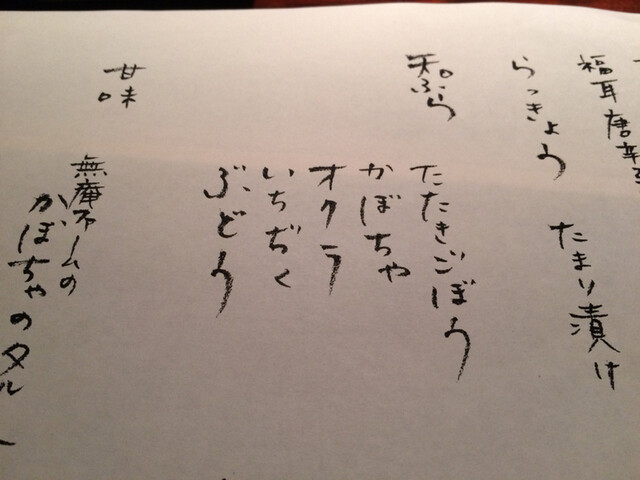 福耳唐辛子
らっきょう たまり漬け
天ぷら
たたきごぼう
かぼちゃ
オクラ
いちぢく
ぶどう
甘味
無庵ホームの
かぼちゃのタルト